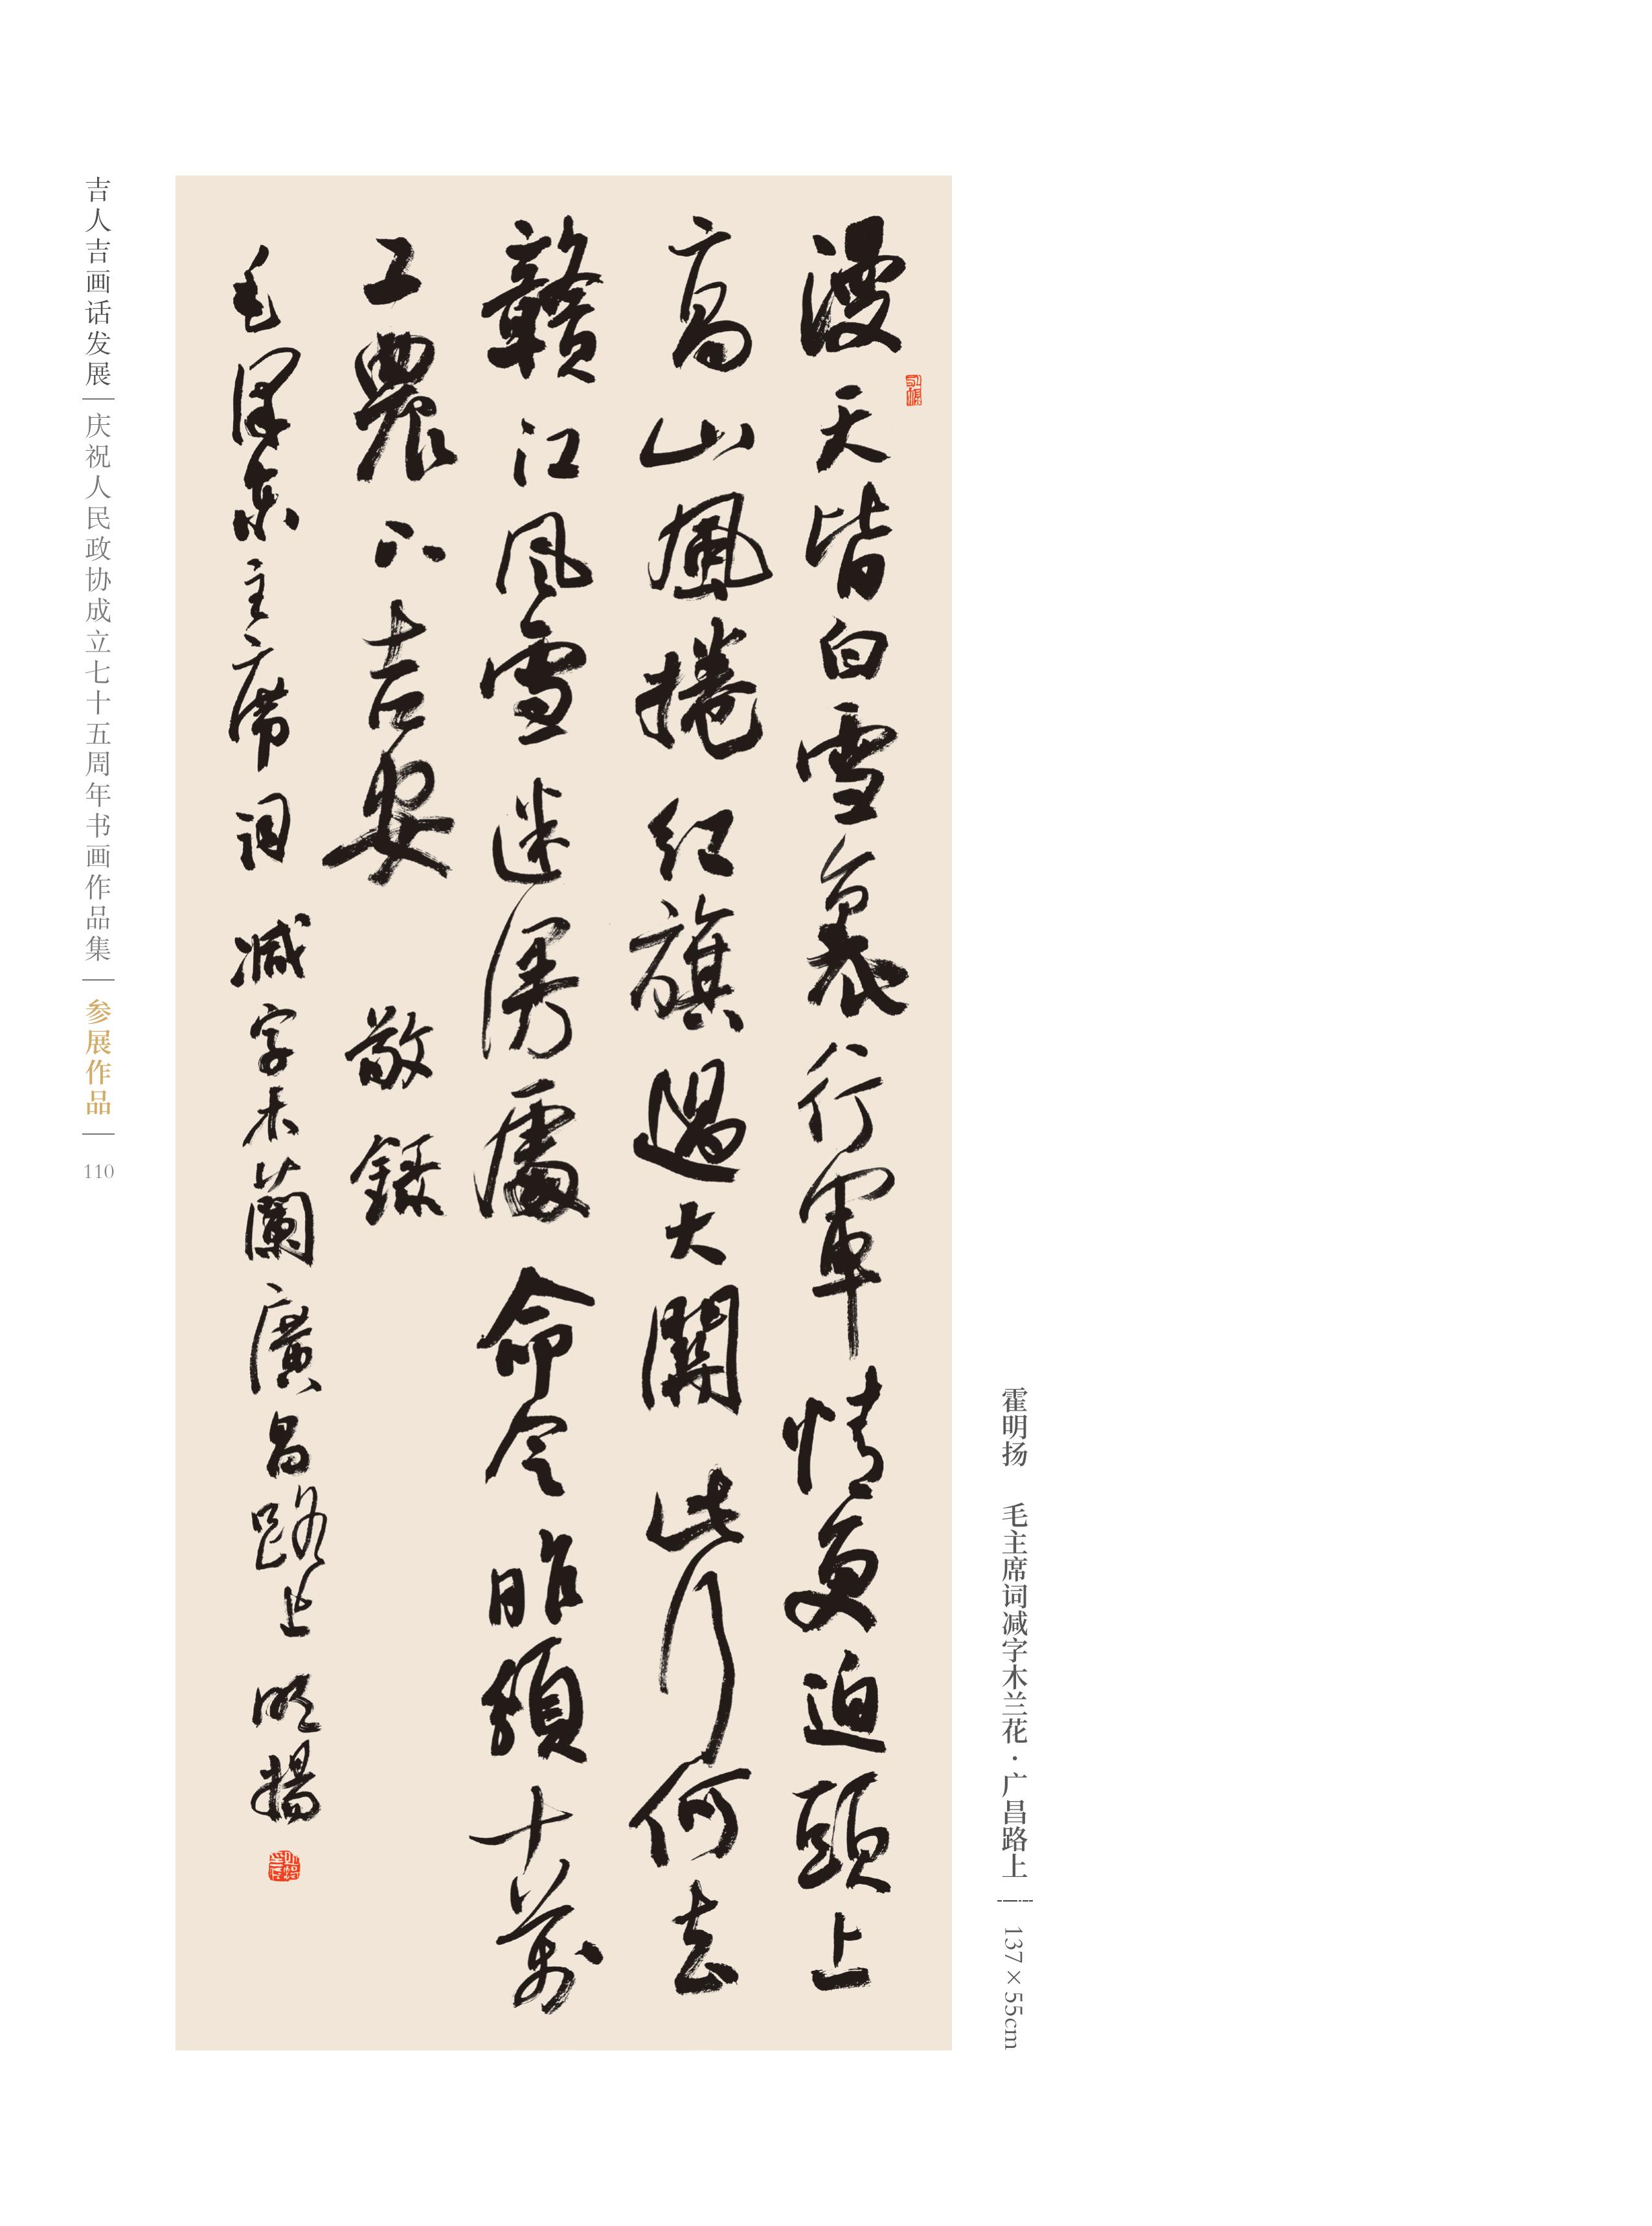 吉人吉画话发展 庆祝人民政协成立七十五周年书画作品集 参展作品 110
漫天皆白雪裏行軍情更迫頭上
高山風捲紅旗過大關此行何去
贛江风雪迷漫處命令昨頒十萬
工農下吉安 敬録
毛澤東主席詞 减字木蘭廣昌路上 明揚
霍明扬 毛主席词减字木兰花·广昌路上 137×55cm